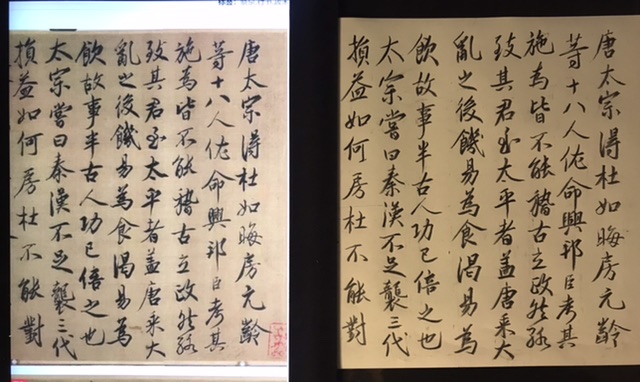 唐太宗得杜如晦房元齡
等十八人佐命興邦臣考其
施為皆不能稽古立政然
致其君至太平者蓋唐乘大
亂之後饑易為食渴易為
飲故事半古人功已倍之也
太宗嘗曰秦漢不足襲三代
損益如何房杜不能對
唐太宗得杜如晦房元齡
等十八人佐命興邦臣考其
施為皆不能稽古立政然
致其君至太平者蓋唐乘大
亂之後饑易為食渴易為
飲故事半古人功已倍之也
太宗嘗曰秦漢不足襲三代
損益如何房杜不能對